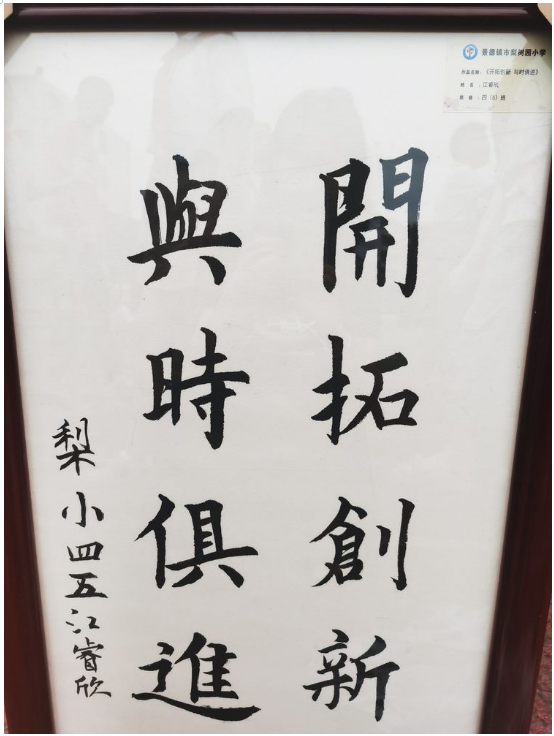 開拓創新
與時俱進
梨小四五江睿欣
景德镇市梨树园小学
作品名称：《开拓创新 与时俱进》
姓 名 ：江睿欣
班 级 ：四（5）班